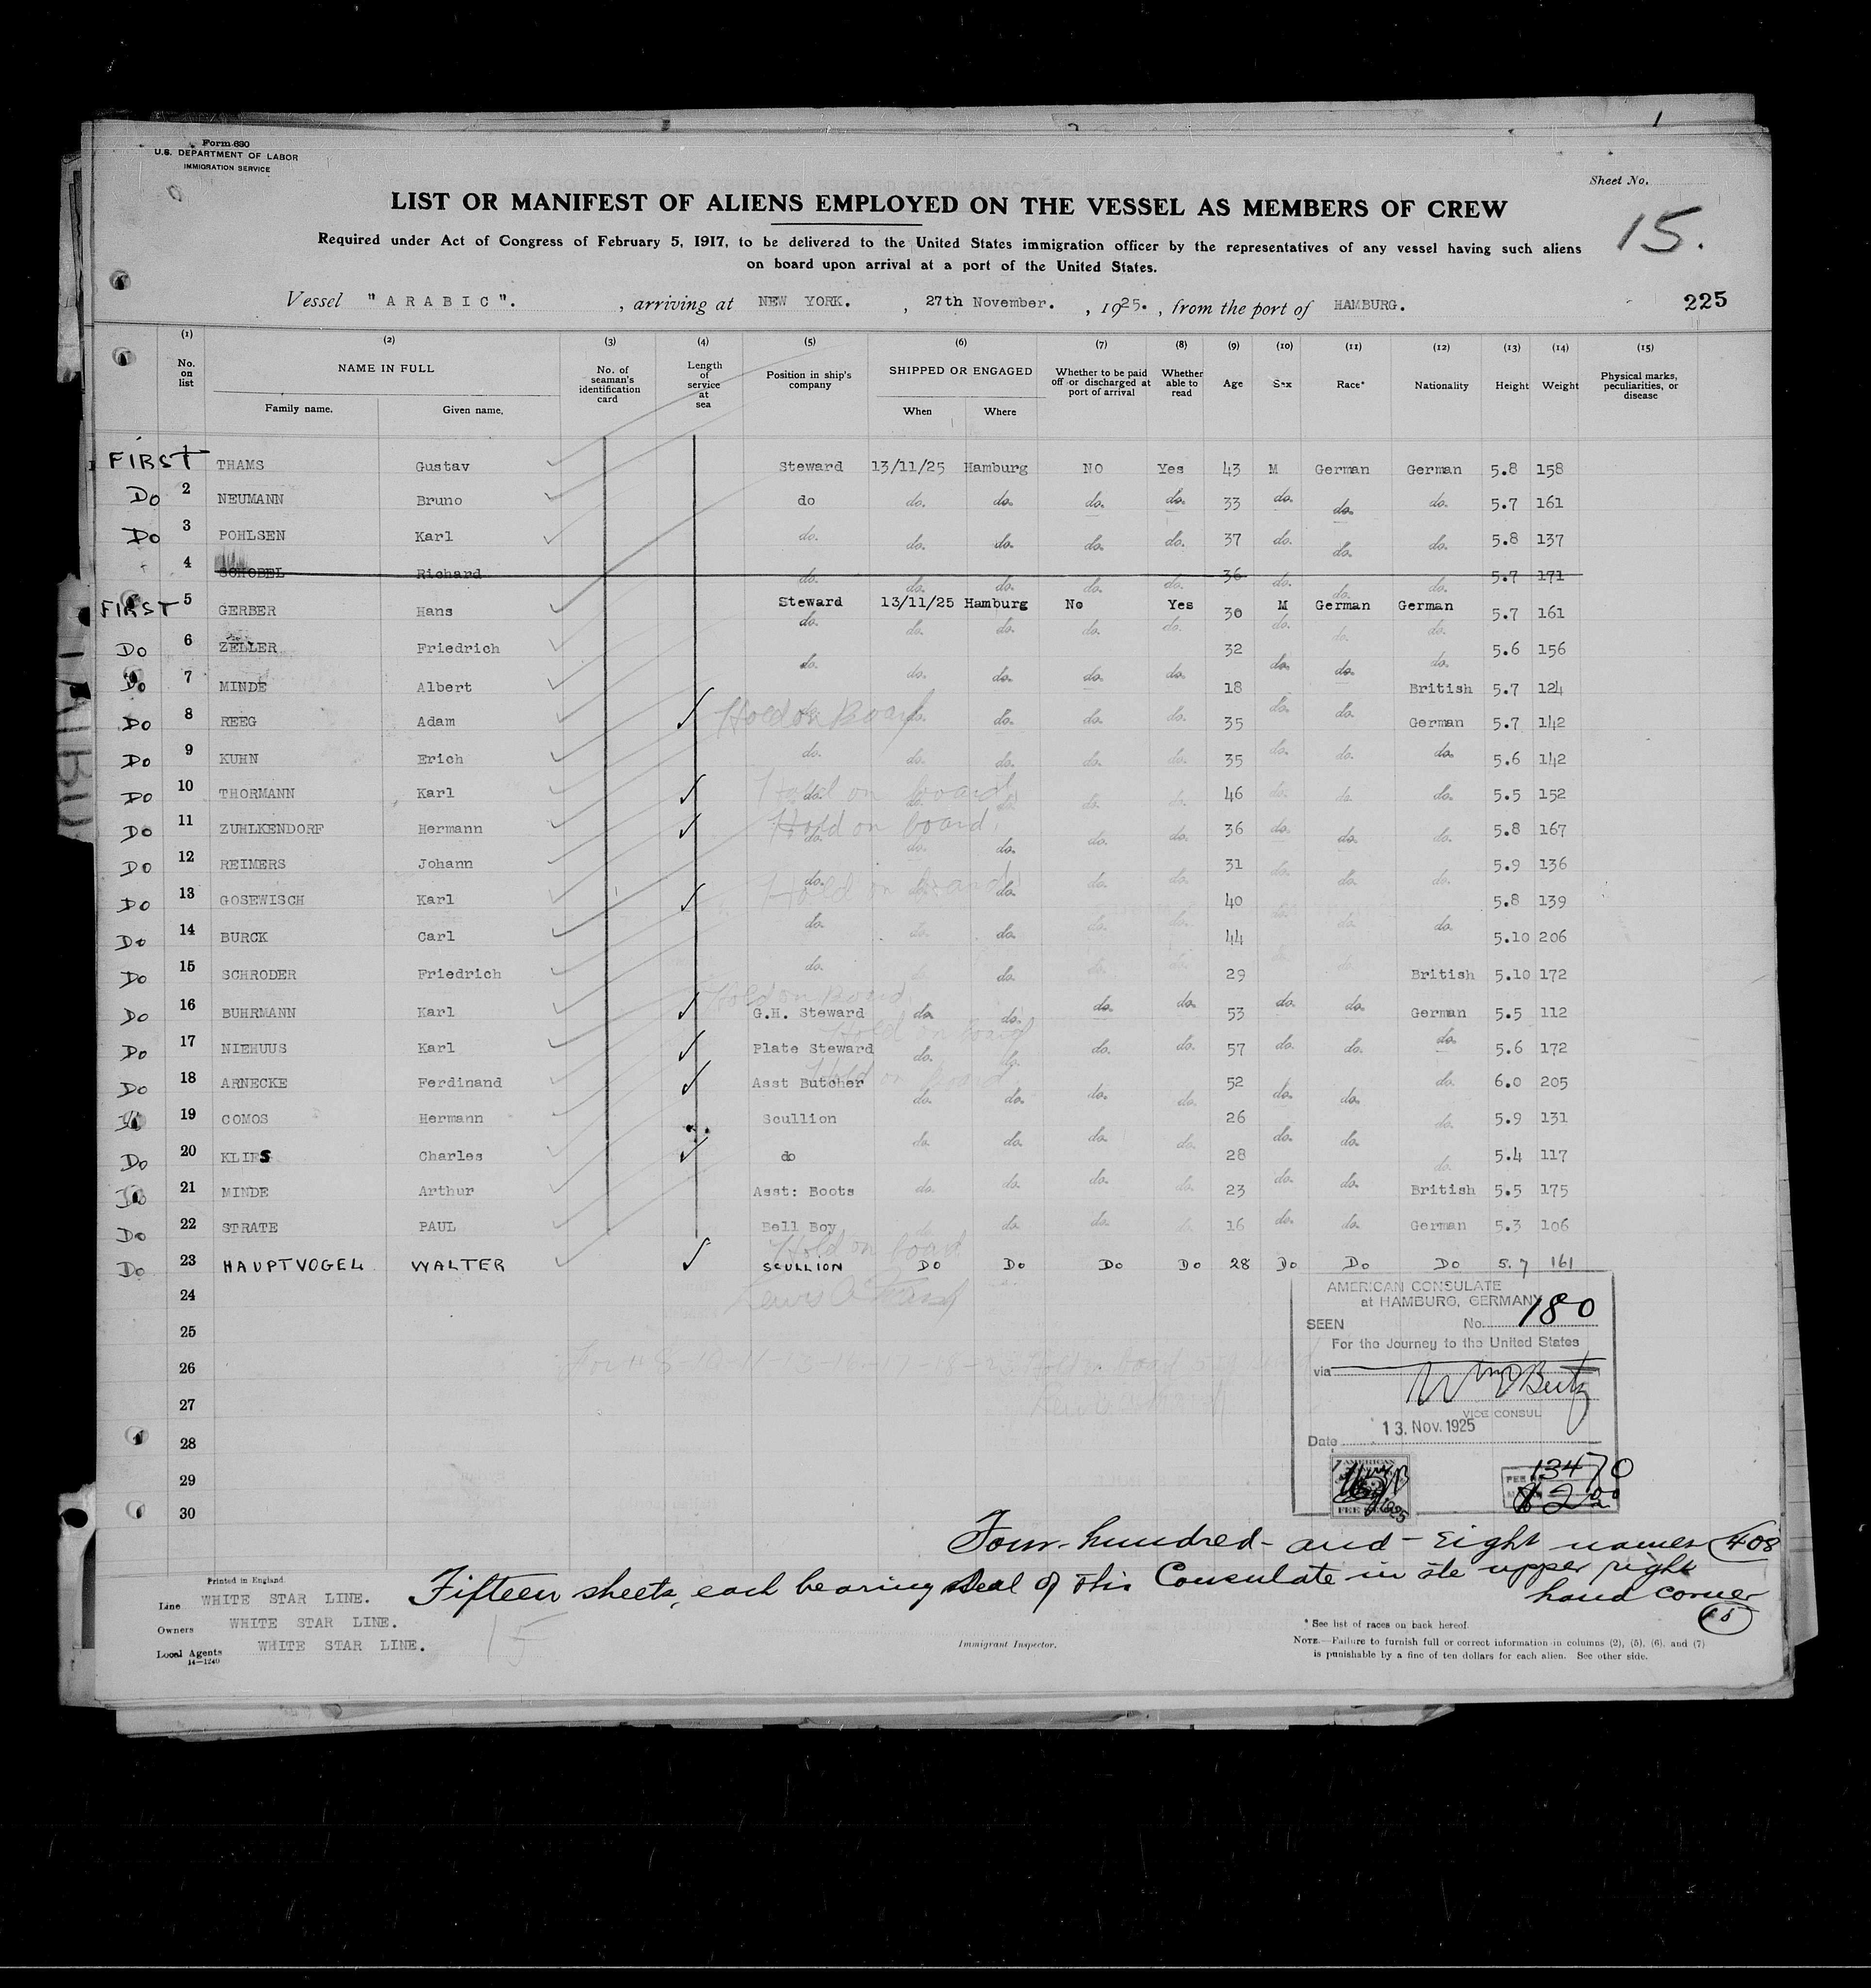 Form 680
U.S. DEPARTMENT OF LABOR
IMMIGRATION SERVICE
Sheet No.
15.
LIST OR MANIFEST OF ALIENS EMPLOYED ON THE VESSEL AS MEMBERS OF CREW
Required under Act of Congress of February 5, 1917, to be delivered to the United States immigration officer by the representatives of any vessel having such aliens
on board upon arrival at a port of the United States.
Vessel "ARABIC". , arriving at NEW YORK. , 27th November. , 1925. , from the port of HAMBURG. 225
(1) No. on list (2) NAME IN FULL Family name. Given name. (3) No. of seaman's identification card (4) Length of service at sea (5) Position in ship's company (6) SHIPPED OR ENGAGED When Where (7) Whether to be paid off or discharged at port of arrival (8) Whether able to read (9) Age (10) Sex (11) Race* (12) Nationality (13) Height (14) Weight (15) Physical marks, peculiarities, or disease
FIRST 1 THAMS Gustav Steward 13/11/25 Hamburg NO Yes 43 M German German 5.8 158
Do 2 NEUMANN Bruno do do. do. do. do. 33 do. do. do. 5.7 161
Do 3 POHLSEN Karl do. do. do. do. do. 37 do. do. do. 5.8 137
4 SCHOBEL Richard do. do. do. do. do. 36 do. do. do. 5.7 171
FIRST 5 GERBER Hans Steward 13/11/25 Hamburg No Yes 30 M German German 5.7 161
Do 6 ZELLER Friedrich do. do. do. do. do. 32 do. do. do. 5.6 156
Do 7 MINDE Albert do. do. do. do. do. 18 do. do. do. British 5.7 124
Do 8 REEG Adam Hold on Board do. do. do. do. 35 do. do. German 5.7 142
Do 9 KUHN Erich do. do. do. do. do. 35 do. do. do. 5.6 142
Do 10 THORMANN Karl Hold on board do. do. do. do. do. 46 do. do. do. 5.5 152
Do 11 ZUHLKENDORF Hermann Hold on board. do. do. do. do. do. 36 do. do. do. 5.8 167
Do 12 REIMERS Johann do. do. do. do. do. 31 do. do. do. 5.9 136
Do 13 GOSEWISCH Karl Hold on board do. do. 40 5.8 139
Do 14 BURCK Carl do. do. do. do. do. 44 do. do. do. 5.10 206
Do 15 SCHRODER Friedrich do. do. do. do. do. 29 do. do. British 5.10 172
Do 16 BUHRMANN Karl Hold on Board. G.H. Steward do. do. do. do. 53 do. do. German 5.5 112
Do 17 NIEHUUS Karl Hold on board Plate Steward do. do. do. do. 57 do. do. do. 5.6 172
Do 18 ARNECKE Ferdinand Hold on board Asst Butcher do. do. do. do. 52 do. do. do. 6.0 205
Do 19 COMOS Hermann Scullion do. do. do. do. 26 do. do. do. 5.9 131
Do 20 KLIFS Charles do do. do. do. do. 28 do. do. do. 5.4 117
Do 21 MINDE Arthur Asst: Boots do. do. do. do. 23 do. do. British 5.5 175
Do 22 STRATE PAUL Bell Boy do. do. do. do. 16 do. do. German 5.3 106
Do 23 HAUPTVOGEL WALTER Hold on board SCULLION DO DO DO DO 28 DO DO DO 5.7 161
24
25
26
27
28
29
30
AMERICAN CONSULATE
at HAMBURG, GERMANY
SEEN No. 180
For the Journey to the United States
via
VICE CONSUL
Date 13. Nov. 1925
13470
Four-hundred-and-Eight names 408
Fifteen sheets, each bearing seal of this Consulate in the upper right
hand corner
15
Printed in England.
Line WHITE STAR LINE.
Owners WHITE STAR LINE.
Local Agents WHITE STAR LINE.
14—1240
15
Immigrant Inspector.
* See list of races on back hereof.
NOTE.—Failure to furnish full or correct information in columns (2), (5), (6), and (7)
is punishable by a fine of ten dollars for each alien. See other side.